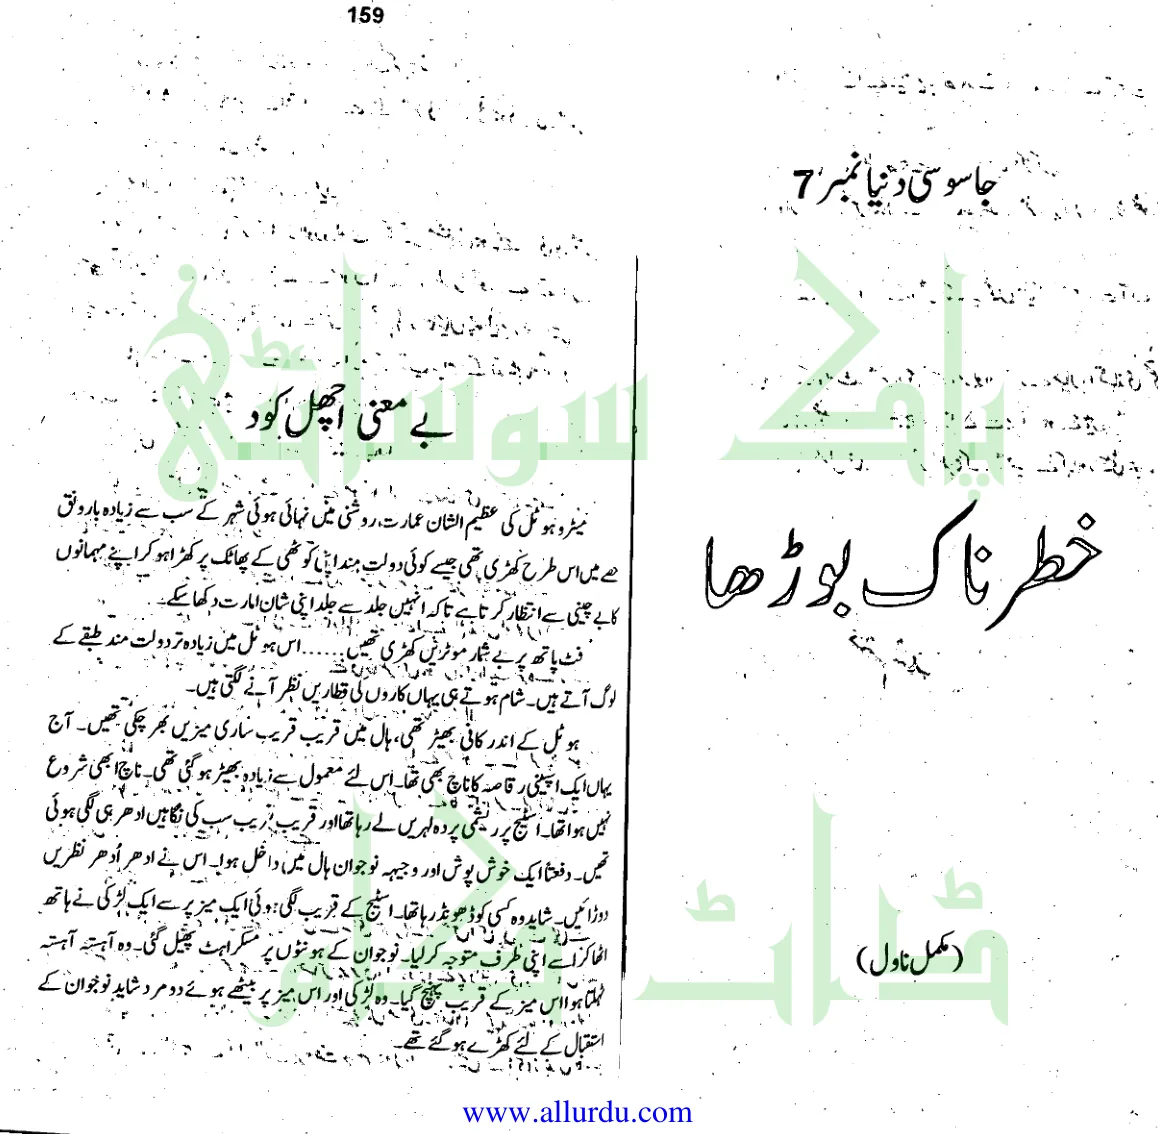 159
جاسوسی دنیا نمبر 7
خطرناک بوڑھا
(مکمل ناول)
بے معنی اچھل کود
میٹرو ہوٹل کی عظیم الشان عمارت، روشنی میں نہائی ہوئی شہر کے سب سے زیادہ بارونق
حصے میں اس طرح کھڑی تھی جیسے کوئی دولت مند اپنی کوٹھی کے پھاٹک پر کھڑا ہو کر اپنے مہمانوں
کا بے چینی سے انتظار کرتا ہے تاکہ انہیں جلد سے جلد اپنی شان امارت دکھا سکے۔
فٹ پاتھ پر بے شمار موٹریں کھڑی تھیں......اس ہوٹل میں زیادہ تر دولت مند طبقے کے
لوگ آتے ہیں۔ شام ہوتے ہی یہاں کاروں کی قطاریں نظر آنے لگتی ہیں۔
ہوٹل کے اندر کافی بھیڑ تھی، ہال میں قریب قریب ساری میزیں بھر چکی تھیں۔ آج
یہاں ایک اسپینی رقاصہ کا ناچ بھی تھا۔ اس لئے معمول سے زیادہ بھیڑ ہو گئی تھی۔ ناچ ابھی شروع
نہیں ہوا تھا۔ اسٹیج پر ریشمی پردہ لہریں لے رہا تھا اور قریب قریب سب کی نگاہیں ادھر ہی لگی ہوئی
تھیں۔ دفعتاً ایک خوش پوش اور وجیہہ نوجوان ہال میں داخل ہوا۔ اس نے ادھر اُدھر نظریں
دوڑائیں۔ شاید وہ کسی کو ڈھونڈ رہا تھا۔ اسٹیج کے قریب لگی ہوئی ایک میز پر سے ایک لڑکی نے ہاتھ
اٹھا کر اسے اپنی طرف متوجہ کر لیا۔ نوجوان کے ہونٹوں پر مسکراہٹ پھیل گئی۔ وہ آہستہ آہستہ
ٹہلتا ہوا اس میز کے قریب پہنچ گیا۔ وہ لڑکی اور اس میز پر بیٹھے ہوئے دو مرد شاید نوجوان کے
استقبال کے لئے کھڑے ہو گئے تھے۔
پاک سوسائٹی
ڈاٹ کام
www.allurdu.com